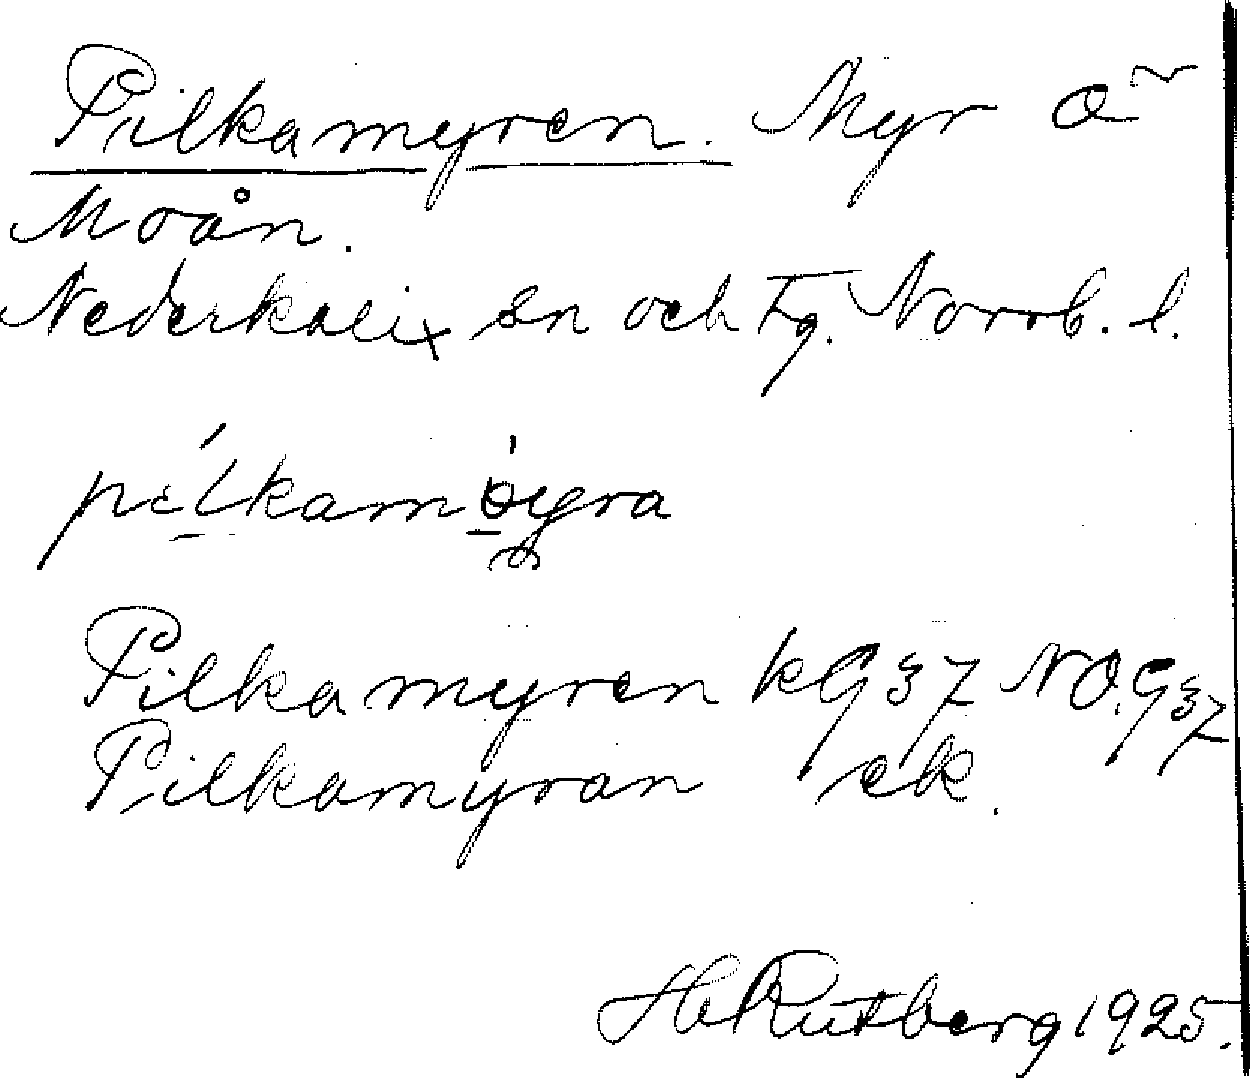 Pilkamyren. Myr O~
Moån.
Nederkalix sn och tg. Norrb. l.
pilkamøyra
Pilkamyren kG 37 NO. G37
Pilkamyran ek.
H Rutberg 1925.